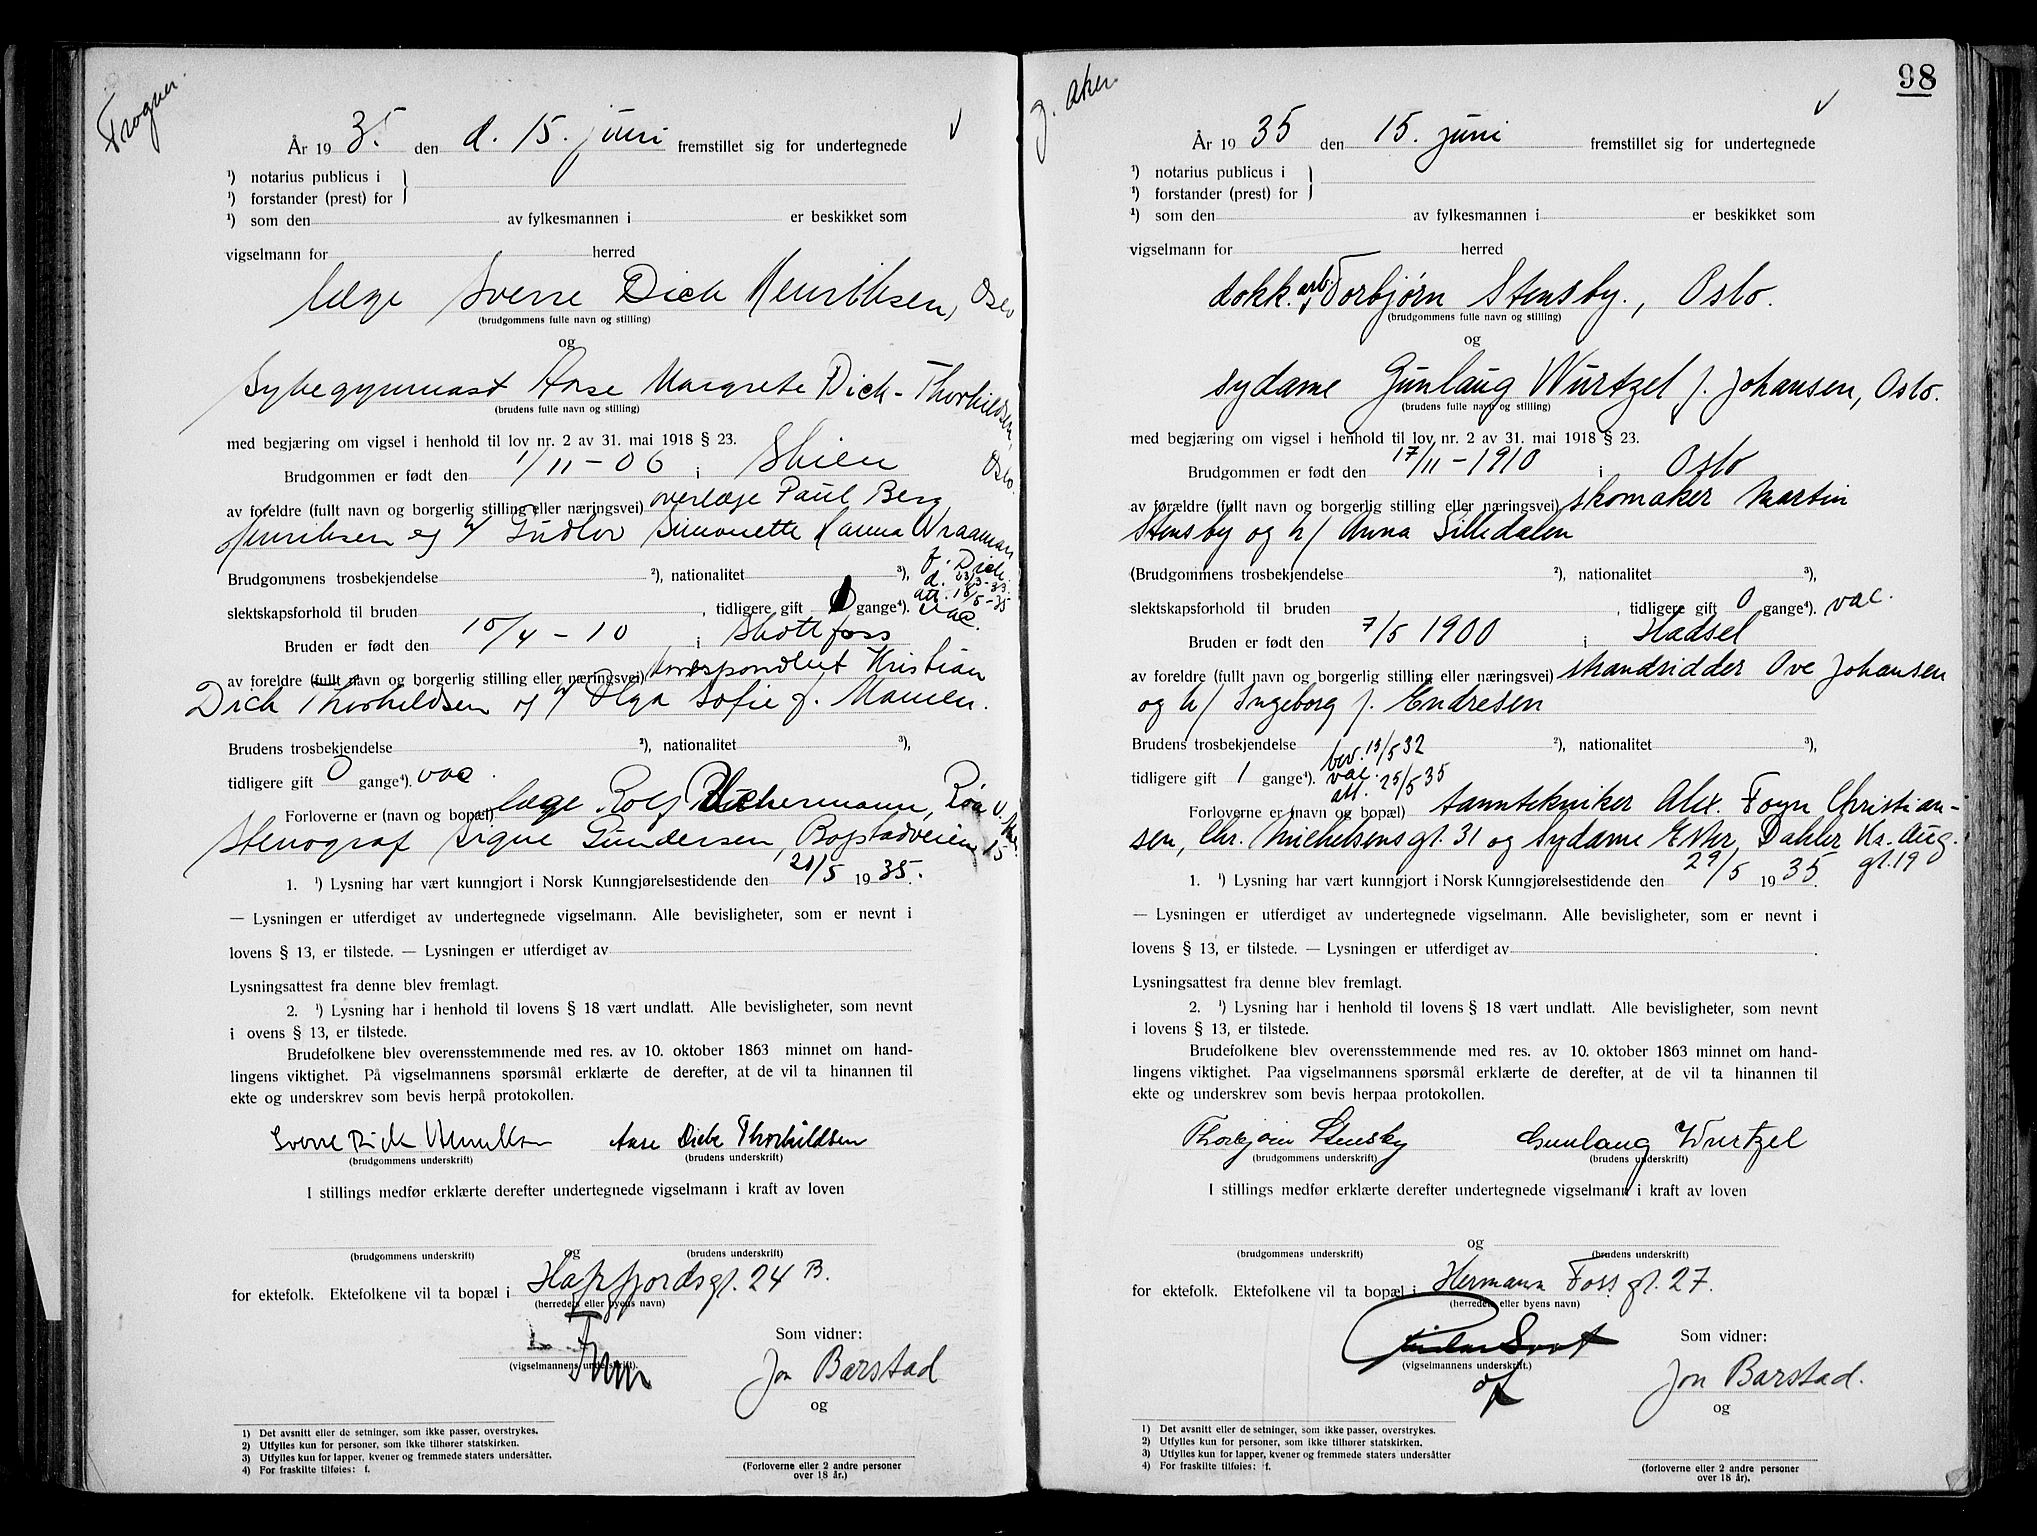 Frogner.
År 1935. den d. 15. juni fremstillet sig for undertegnede
¹) notarius publicus i
¹) forstander (prest) for
¹) som den av fylkesmannen i er beskikket som
vigselmann for herred
læge Sverre Dick Henriksen, Oslo
(brudgommens fulle navn og stilling)
og
Sykegymnast Aase Margrete Dick-Thorhildsen, Oslo.
(brudens fulle navn og stilling)
med begjæring om vigsel i henhold til lov nr. 2 av 31. mai 1918 § 23.
Brudgommen er født den 1/11-06 i Skien
av foreldre (fullt navn og borgerlig stilling eller næringsvei) overlæge Paul Berg
Henriksen og h/ Gudlov Simonette Hanna Wraaman
f. Dick.
Brudgommens trosbekjendelse ²), nationalitet ³),
slektskapsforhold til bruden , tidligere gift 0 gange⁴). vac.
Bruden er født den 10/4-10 i Skotfoss
av foreldre (fullt navn og borgerlig stilling eller næringsvei) korrespondent Kristian
Dick Thorhildsen og h/ Olga Sofie f. Mamen.
Brudens trosbekjendelse ²), nationalitet ³),
tidligere gift 0 gange⁴). vac.
Forloverne er (navn og bopæl) læge Rolf Dickermann, Røa V. Aker.
Stenograf Signe Gundersen, Bogstadveien 15
1. ¹) Lysning har vært kunngjort i Norsk Kunngjørelsestidende den 28/5 1935.
— Lysningen er utferdiget av undertegnede vigselmann. Alle bevisligheter, som er nevnt i
lovens § 13, er tilstede. — Lysningen er utferdiget av
Lysningsattest fra denne blev fremlagt.
2. ¹) Lysning har i henhold til lovens § 18 vært undlatt. Alle bevisligheter, som nevnt
i ovens § 13, er tilstede.
Brudefolkene blev overensstemmende med res. av 10. oktober 1863 minnet om hand-
lingens viktighet. På vigselmannens spørsmål erklærte de derefter, at de vil ta hinannen til
ekte og underskrev som bevis herpå protokollen.
Sverre Dick Henriksen Aase Dick Thorhildsen
(brudgommens underskrift) (brudens underskrift)
I stillings medfør erklærte derefter undertegnede vigselmann i kraft av loven
og
(brudgommens underskrift) (brudens underskrift)
for ektefolk. Ektefolkene vil ta bopæl i Haxfjordsgt. 24 B.
(herredets eller byens navn)
Som vidner:
(vigselmannens underskrift).
Jon Barstad
og
1) Det avsnitt eller de setninger, som ikke passer, overstrykes.
2) Utfylles kun for personer, som ikke tilhører statskirken.
3) Utfylles kun for lapper, kvener og fremmede staters undersåtter.
4) For fraskilte tilføies: f.
(Forloverne eller 2 andre personer
over 18 år.)
98
g. Aker.
År 1935 den 15. juni fremstillet sig for undertegnede
¹) notarius publicus i
¹) forstander (prest) for
¹) som den av fylkesmannen i er beskikket som
vigselmann for herred
dokk.arb. Torbjørn Stensby., Oslo.
(brudgommens fulle navn og stilling)
og
sydame Gunlaug Wurtzel f. Johansen, Oslo.
(brudens fulle navn og stilling)
med begjæring om vigsel i henhold til lov nr. 2 av 31. mai 1918 § 23.
Brudgommen er født den 17/11-1910 i Oslo
av foreldre (fullt navn og borgerlig stilling eller næringsvei) skomaker Martin
Stensby og h/ Anna Silledalen
(Brudgommens trosbekjendelse ²), nationalitet ³),
slektskapsforhold til bruden , tidligere gift 0 gange⁴). vac.
Bruden er født den 7/5 1900 i Hadsel
av foreldre (fullt navn og borgerlig stilling eller næringsvei) strandridder Ove Johansen
og h/ Ingeborg f. Endresen
Brudens trosbekjendelse ²), nationalitet ³),
bev. 13/5 32
tidligere gift 1 gange⁴). vac.
att. 25/5 35
Forloverne er (navn og bopæl) tanntekniker Alex. Foyn Christian-
sen, Chr. Michelsensgt. 31 og sydame Esther Dahler Kr. Aug.
gt. 19
1. ¹) Lysning har vært kunngjort i Norsk Kunngjørelsestidende den 29/5 1935.
— Lysningen er utferdiget av undertegnede vigselmann. Alle bevisligheter, som er nevnt i
lovens § 13, er tilstede. — Lysningen er utferdiget av .
Lysningsattest fra denne blev fremlagt.
2. ¹) Lysning har i henhold til lovens § 18 vært undlatt. Alle bevisligheter, som nevnt
i lovens § 13, er tilstede.
Brudefolkene blev overensstemmende med res. av 10. oktober 1863 minnet om hand-
lingens viktighet. Paa vigselmannens spørsmål erklærte de derefter, at de vil ta hinannen til
ekte og underskrev som bevis herpaa protokollen.
Thorbjørn Stensby Gunlaug Wurtzel
(brudgommens underskrift) (brudens underskrift)
I stillings medfør erklærte derefter undertegnede vigselmann i kraft av loven
og
(brudgommens underskrift) (brudens underskrift)
for ektefolk. Ektefolkene vil ta bopæl i Hermann Foss gt. 27.
(herredets eller byens navn)
Som vidner:
(vigselmannens underskrift.)
Jon Barstad.
og
1) Det avsnitt eller de setninger, som ikke passer, overstrykes.
2) Utfylles kun for personer, som ikke tilhører statskirken.
3) Utfylles kun for lapper, kvener og fremmede staters undersåtter
4) For fraskilte tilføies: f.
(forloverne eller 2 andre personer
over 18 år).